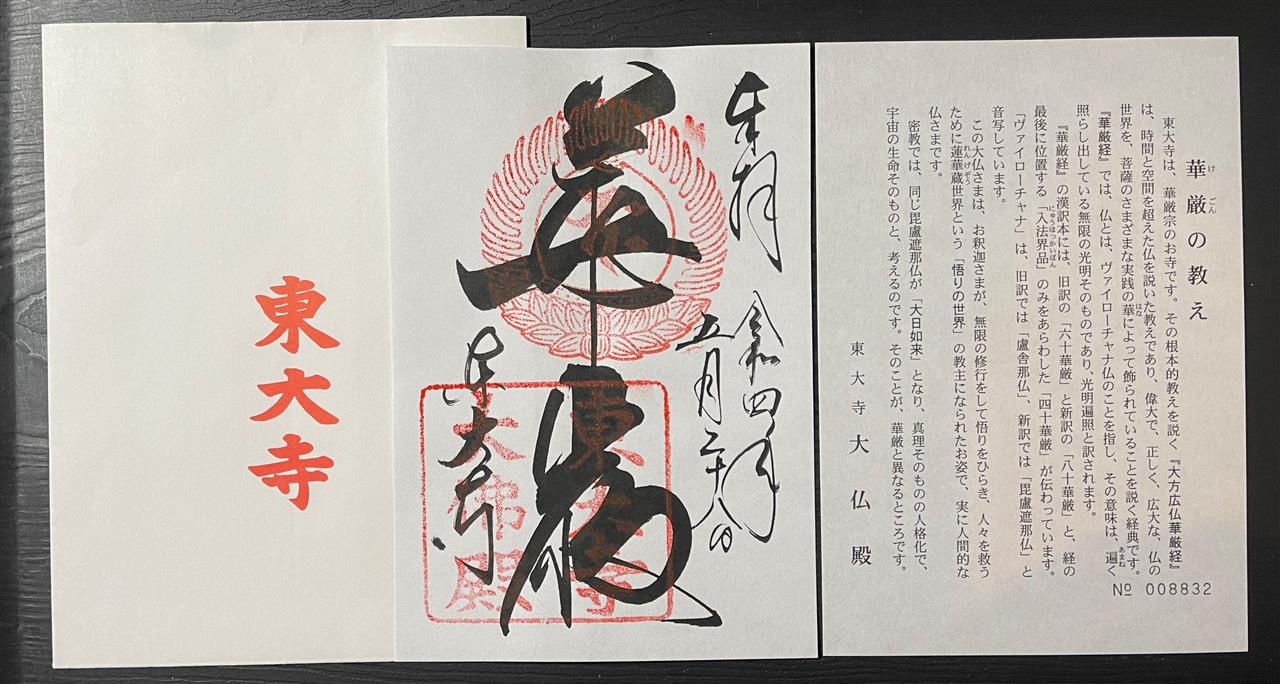 東大寺
奉拝
令和四年
五月二十八日
華厳
東大寺
東大寺
大佛殿
華厳の教え
けごん
東大寺は、華厳宗のお寺です。その根本的教えを説く『大方広仏華厳経』
は、時間と空間を超えた仏を説いた教えであり、偉大で、正しく、広大な、仏の
世界を、菩薩のさまざまな実践の華によって飾られていることを説く経典です。
はな
『華厳経』では、仏とは、ヴァイローチャナ仏のことを指し、その意味は、遍く
あまね
照らし出している無限の光明そのものであり、光明遍照と訳されます。
『華厳経』の漢訳本には、旧訳の「六十華厳」と新訳の「八十華厳」と、経の
最後に位置する「入法界品」のみをあらわした「四十華厳」が伝わっています。
にゅうほっかいぼん
「ヴァイローチャナ」は、旧訳では「盧舎那仏」、新訳では「毘盧遮那仏」と
音写しています。
この大仏さまは、お釈迦さまが、無限の修行をして悟りをひらき、人々を救う
ために蓮華蔵世界という「悟りの世界」の教主になられたお姿で、実に人間的な
れんげぞう
仏さまです。
密教では、同じ毘盧遮那仏が「大日如来」となり、真理そのものの人格化で、
宇宙の生命そのものと、考えるのです。そのことが、華厳と異なるところです。
東大寺大仏殿
№ 008832